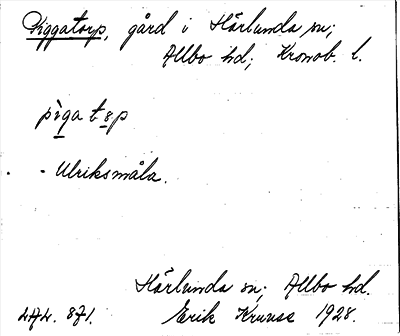 Piggatorp, gård i Härlunda sn;
Allbo hd; Kronob. l.
pìga tɵp
- Ulriksmåla.
Härlunda sn; Allbo hd.
Erik Kruuse 1928.